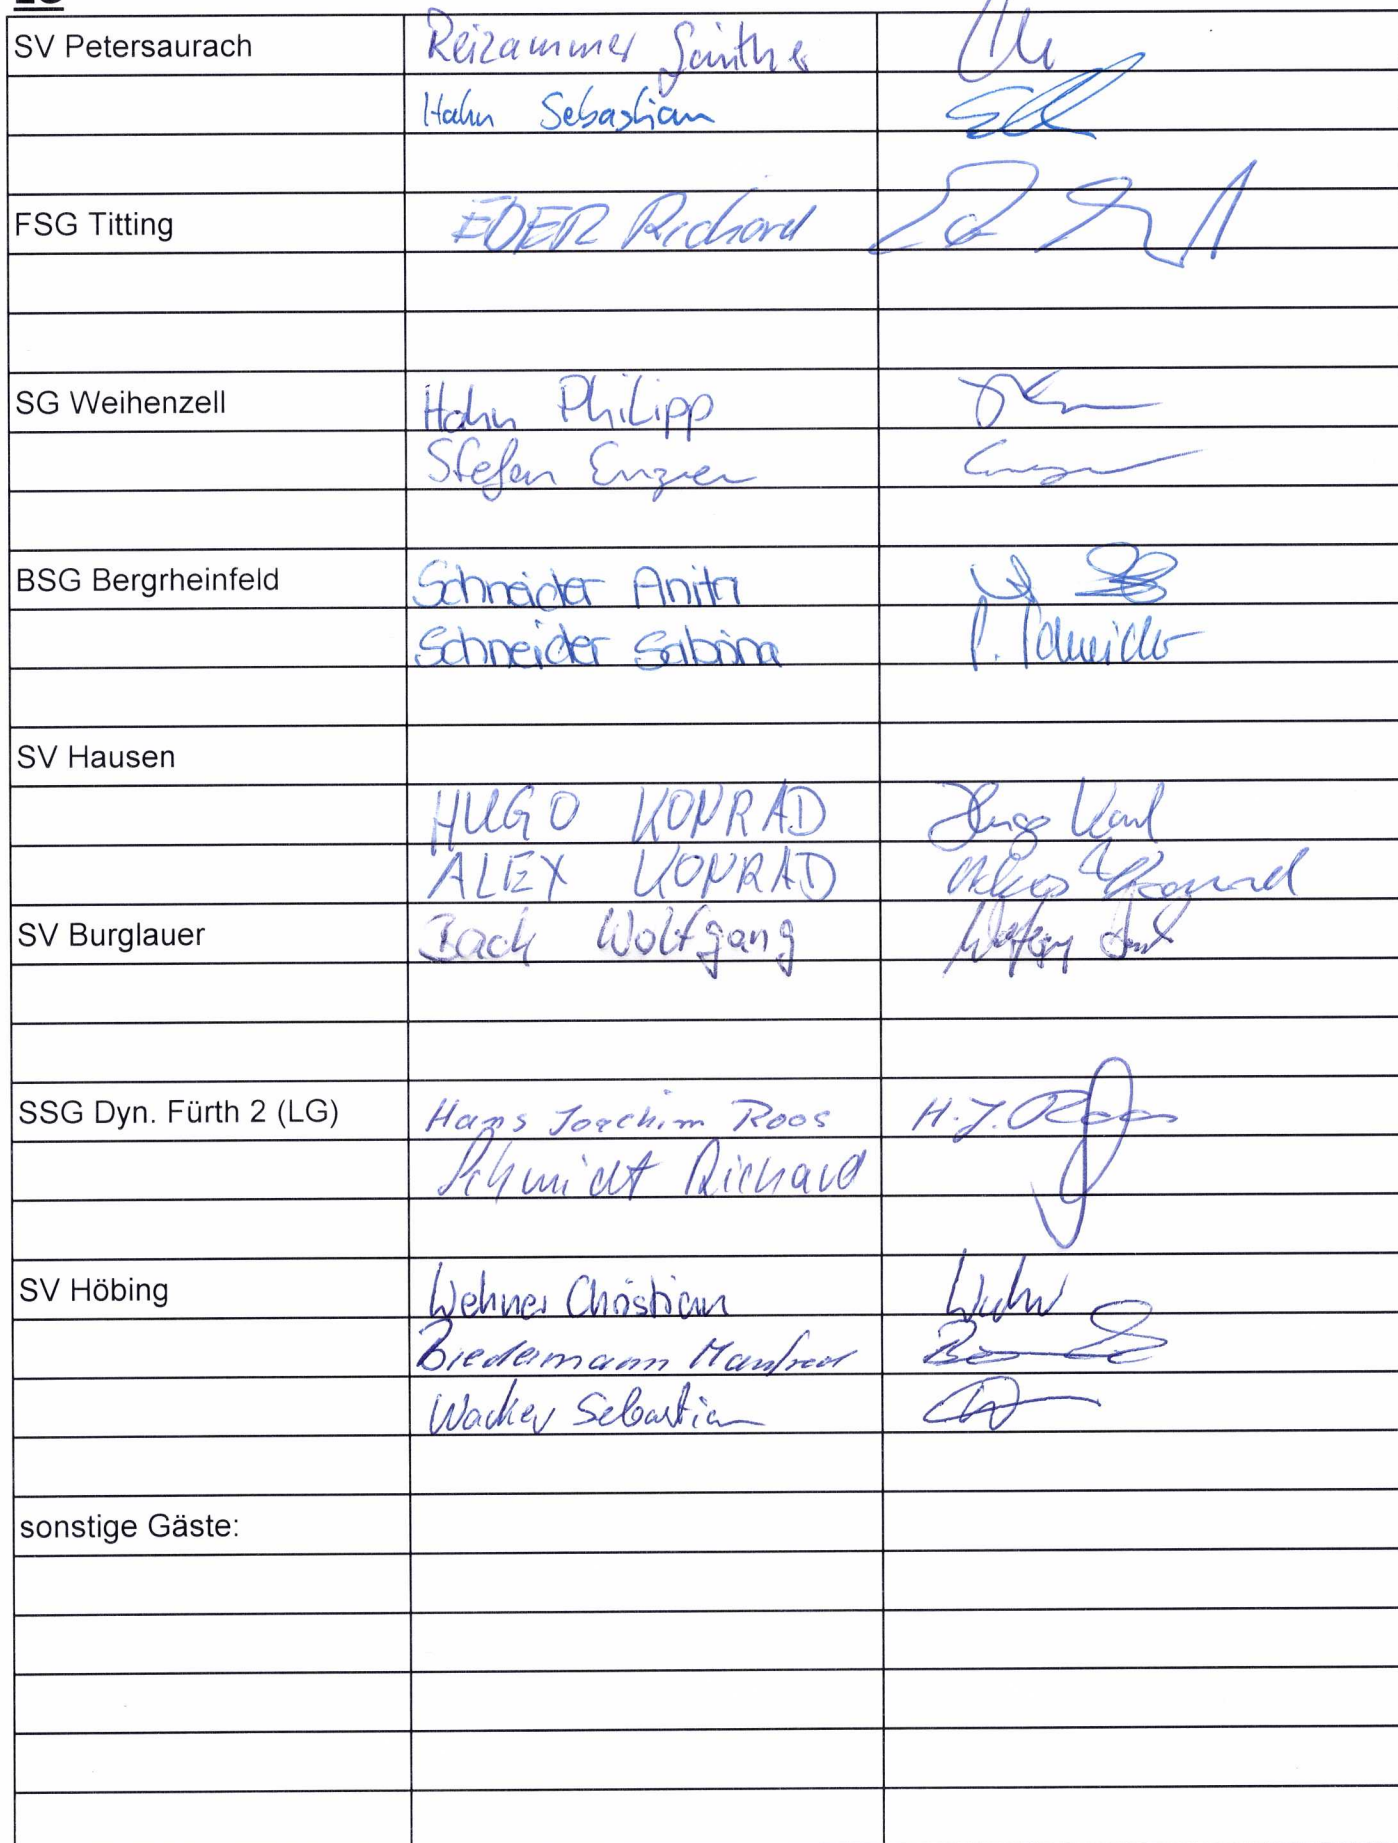 SV Petersaurach Reizammer Günther
Hahn Sebastian
FSG Titting EDER Richard
SG Weihenzell Hahn Philipp
Stefan Enzner
BSG Bergrheinfeld Schneider Anita
Schneider Sabrina S. Schneider
SV Hausen
HUGO KONRAD Hugo Konrad
ALEX KONRAD Konrad
SV Burglauer Back Wolfgang Wolfgang
SSG Dyn. Fürth 2 (LG) Hans Joachim Roos H.J. Roos
Schmidt Richard
SV Höbing Wehner Christian
Biedermann Manfred
Wacker Sebastian
sonstige Gäste: